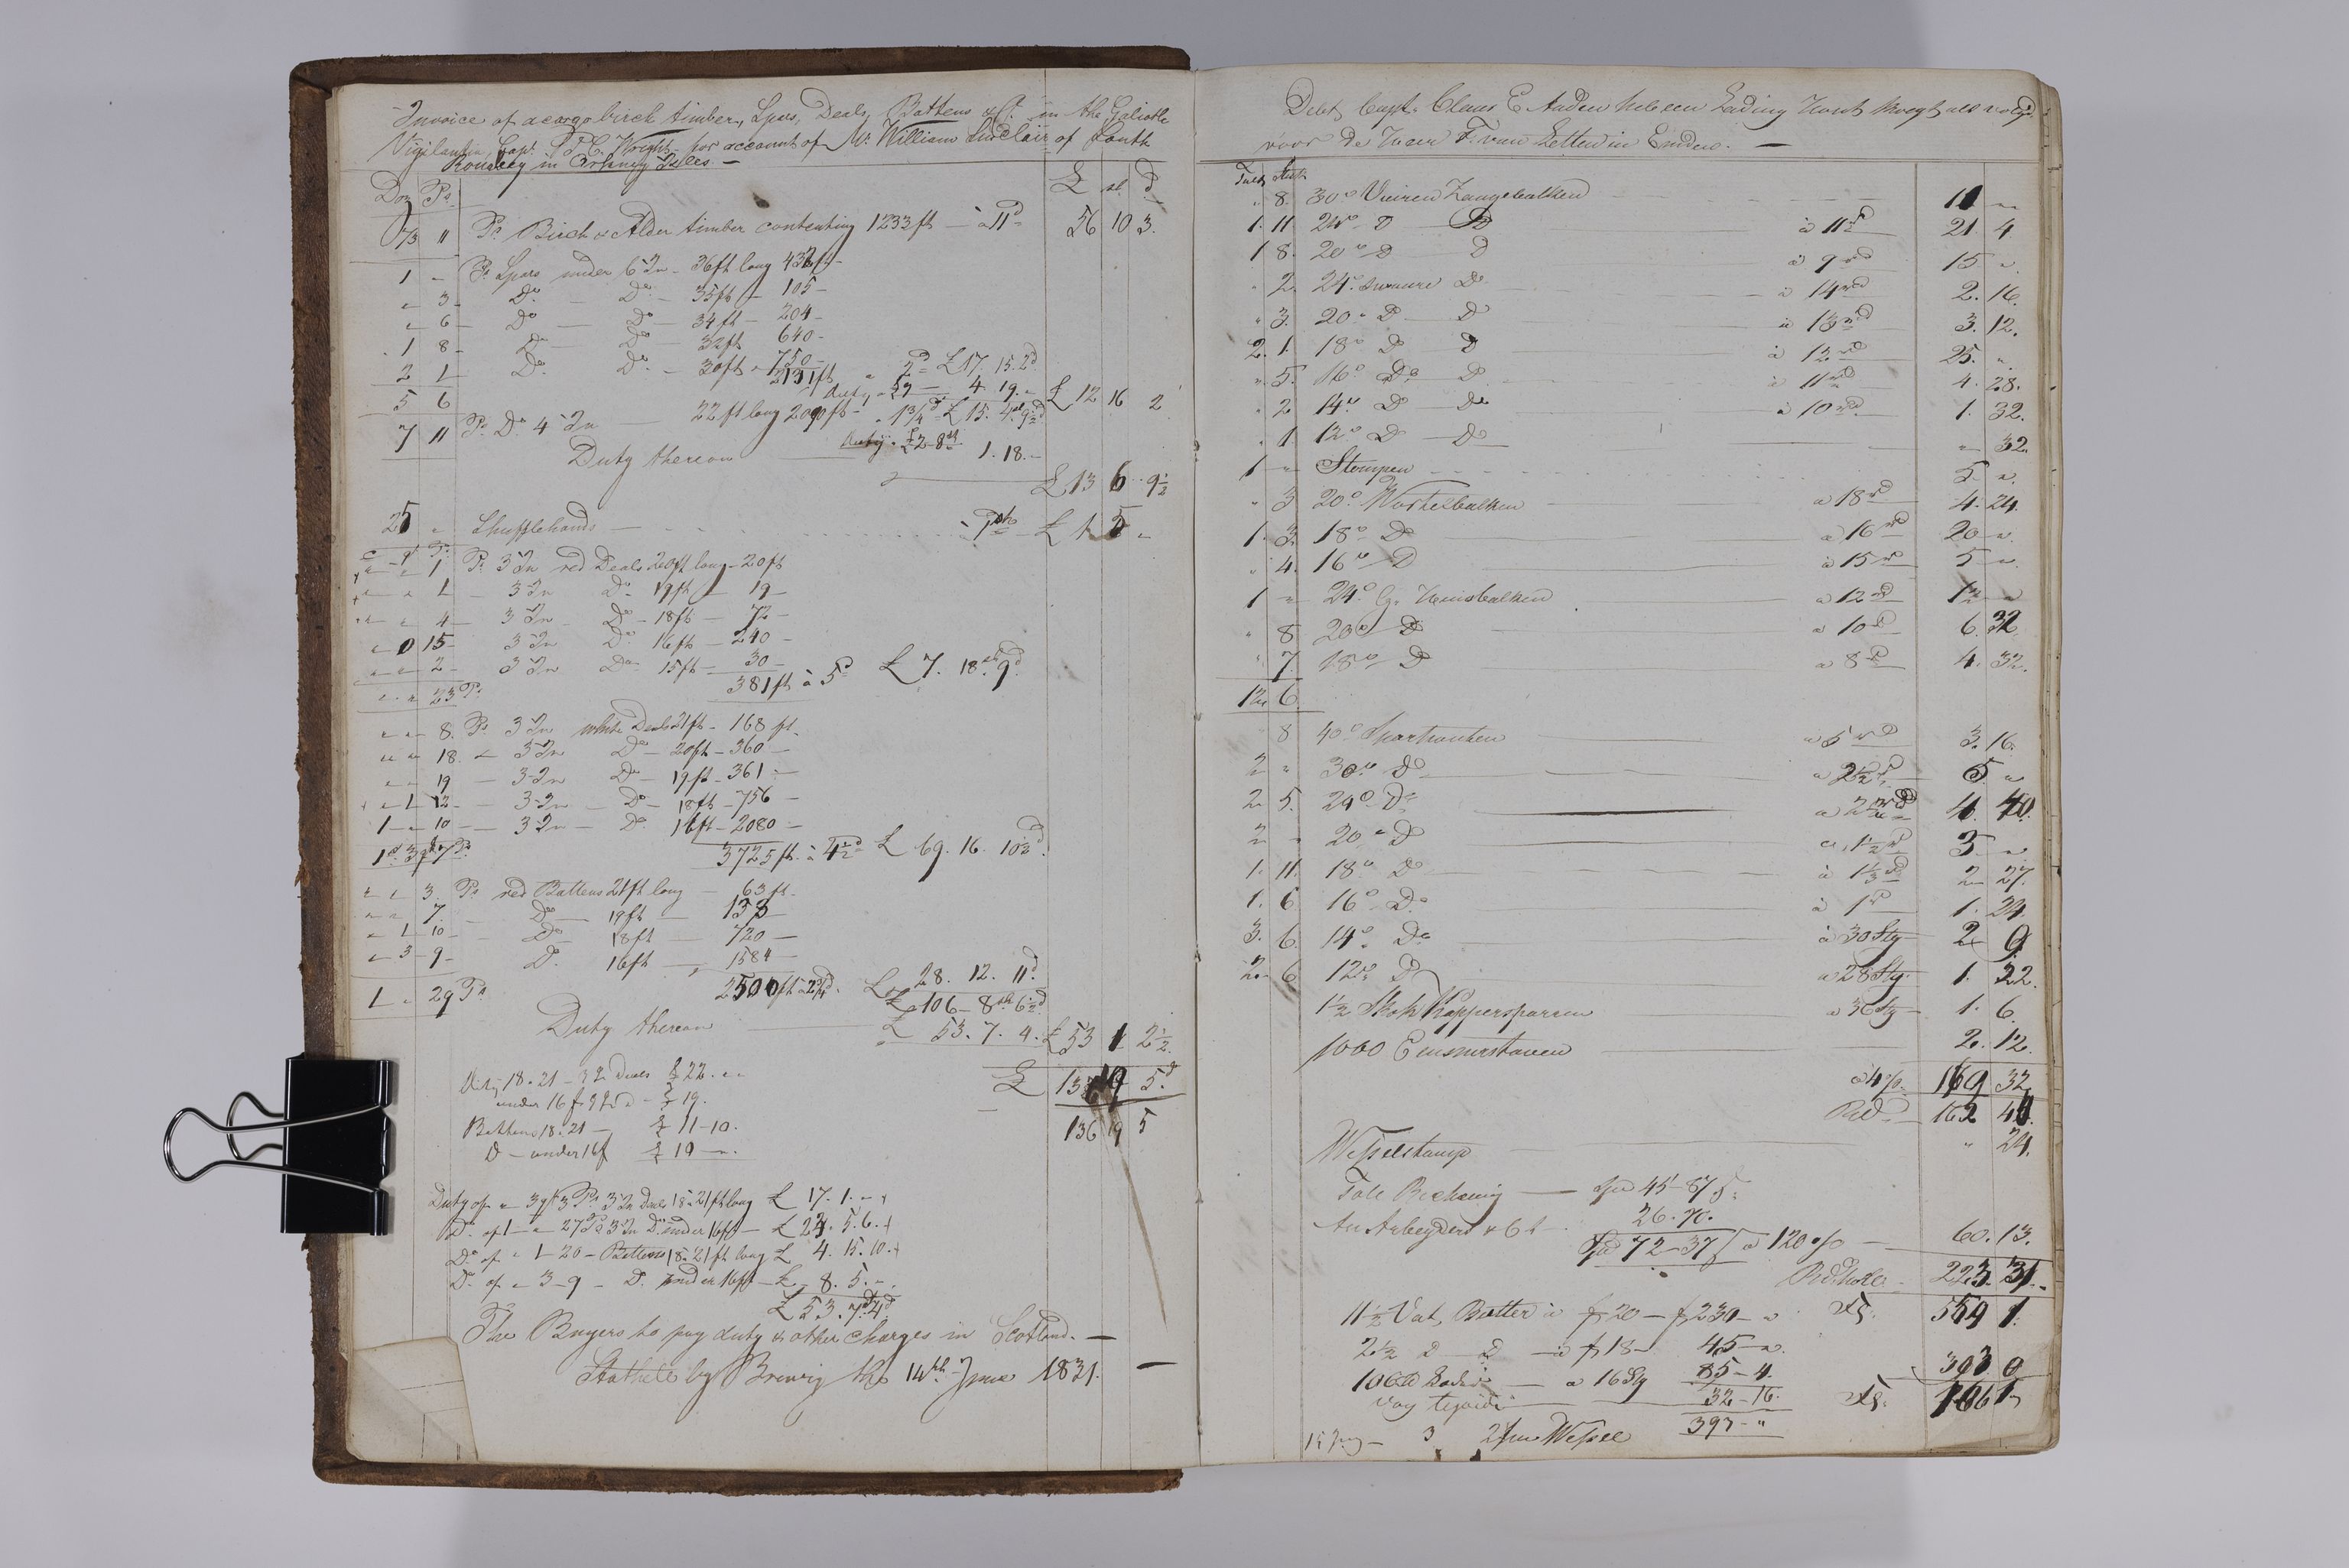 Invoice of a cargo birch timber, Spars, Deals, Battens &c. in the Galiotte
Vigilantia, Capt. Wright for account of Mr. William Sinclair of South
Ronalsey in Orkney Isles —
Doz Ps. £ sh. d
73 11 Ps. Birch & Alder timber contenting 1233 ft — à 11d 56 10 3.
1 - Ps. Spars under 6 In - 36 ft long 432 ft -
" 3 - Do. — Do. - 35 ft - 105 -
" 6 - Do. — Do - 34 ft - 204 -
1 8 - Do. — Do - 32 ft 640 -
2 1 - Do. Do. - 30 ft - 750 -
5 6 2131 ft " 2d £ 17. 15. 2d
Duty 4. 19. - £ 12 16 2
7 11 Ps. Do. 4 In — 22 ft long 2090 ft - 1 3/4d £ 15. 4. 9 1/2d
Duty thereon — £ 2 - 8sh 1. 18. -
£ 13 6 9 1/2
25 " Shufflehands — £ 1 5 "
" " 1 Ps. 3 In red Deals 20 ft long - 20 ft
" " 1 - 3 In Do - 19 ft - 19 -
" " 4 - 3 In Do - 18 ft - 72 -
" 0 15 - 3 In Do 16 ft - 240 -
" " 2 - 3 In Do 15 ft - 30 -
" " 23 Ps. 381 ft à 5d £ 7. 18sh 9d
" " 8. Ps 3 In white Deals 21 ft - 168 ft.
" " 18. - 3 In Do - 20 ft - 360 -
" " 19 - 3 In Do - 19 ft - 361 -
" 1 12 - 3 In — Do - 18 ft - 756 -
1 " 10 — 3 In — Do. 16 ft - 2080 -
3725 ft. à 4 1/2d £ 69. 16. 10 1/2d.
" " 3. Ps red Battens 21 ft long - 63 ft.
" " 7. - Do — 19 ft — 133 —
" 1 10 - Do - 18 ft — 720 —
" 3 9 - Do. 16 ft — 1584 —
1 " 29 Ps 2500 ft à 2 3/4d. £ 28. 12. 11d
£ 106 - 8sh 6 1/2d
Duty thereon £ 53. 7. 4. £ 53 1 2 1/2
£ 136 19 5d
Duty 18. 21 - 3 In Deals £ 22. "
under 16 f 19.
136 19 5
Battens 18. 21 — £ 11 - 10.
D - under 16 f £ 10 — "
Duty of " 3 qr 3 Ps. 3 In Deals 18 à 21 ft long £ 17. 1. -
Do. of 1 - " 27 Ps 3 In D. under 16 ft - £ 23. 5. 6.
Do. of " 1 - 20 - Battens 18. 21 ft long £ 4. 15. 10.
D. of " 3 - 9 - D. under 16 ft - £ 8. 5. -
£ 53. 7. 4d
The Buyers to pay duty & other charges in Scotland. —
Stathelle by Brevig the 14th June 1831. —
Debt Capt. Claus E. Auden heb een Lading Hout als volgt
voor de Heer F. van Letten in Emden. —
Tult Stuk
" 8. 30° Vuiren Langebalken — 11 "
1. 11 24° D — D à 11 rd 21. 4
1 8. 20° D D à 9 rd 15 "
" 2. 24° swaare D. — à 14 rd 2. 16.
" 3. 20° D D à 13 rd 3. 12.
2. 1. 18° D D à 12 rd 25. "
" 5. 16° Do D. à 11 rd 4. 28.
" 2 14° D Do à 10 rd 1. 32.
" 1 12° D — Do " 32.
1 " Stompen 5 "
" 3 20° à 18 rd 4. 24.
1. 3. 18° D à 16 rd 20 "
" 4. 16° D à 15 rd 5 "
1 " 24° Huisbalken à 12 rd 12 "
" 8 20° D à 10 rd 6. 32
" 7. 18° D à 8 rd 4. 32.
12 6.
" 8 40° Sparhouten à 5 rd 3. 16.
2 " 30° Do à 2 1/2 rd 5. "
2 5. 24° Do 4. 40.
2 " 20° Do à 1 1/2 rd 3 "
1. 11. 18° Do à 1 1/3 rd 2 27.
1. 6. 16° Do à 1 rd 1. 24.
3. 6. 14° Do à 30 Sty 2 9
2 6 12° D à 28 Sty 1. 22.
1 1/2 Shok Koppersparren à 36 Sty 1. 6.
1000 2. 12.
à 4 %. 169 32.
Rd. 162 40.
Wesselstamp " 24.
Toll Rechning — Spd 45 - 87
An Arbeyders 26. 70.
Spd 72 - 37 à 120 % — 60. 13.
223 31.
11 1/2 Vat Botter à f 20 — f 230 — " 559 1.
2 1/2 D D à f 18 - 45 - "
à 16 Sty 85 - 4. 393 0
32 - 16. 166 1
15 3 2 Jun Wessel 393 - "